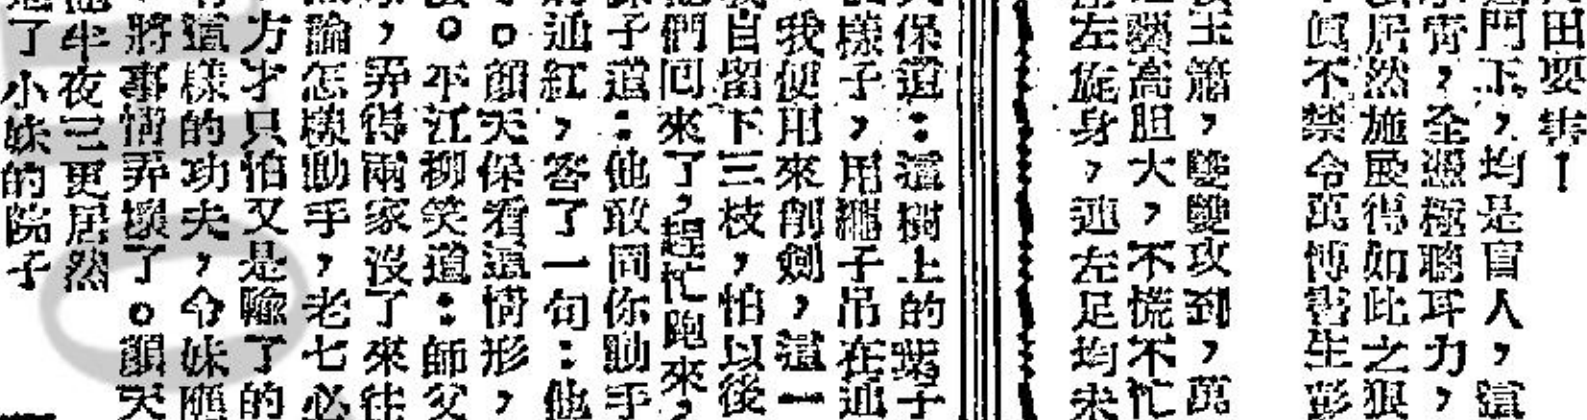 田要害！
門下，均是盲人，這
膏，全憑極聰耳力，
居然施展得如此之狠
眞不禁令萬博書生彭
玉簫，雙雙攻到，萬
藝高胆大，不慌不忙
左旋身，連左足均未
保道：這樹上的葉子
樣子，用繩子吊在通
我便用來削劍，這一
自留下三枝，怕以後
們回來了，趕忙跑來，
子道：他敢同你動手
通紅，客了一句：他
。顏天保看這情形，
。平江柳笑道：師父
，弄得兩家沒了來往
論怎樣動手，老七必
方才只怕又是輸了的
道樣的功夫，令妹隨
將事情弄壞了。顏天
半夜三更居然
了小妹的院子